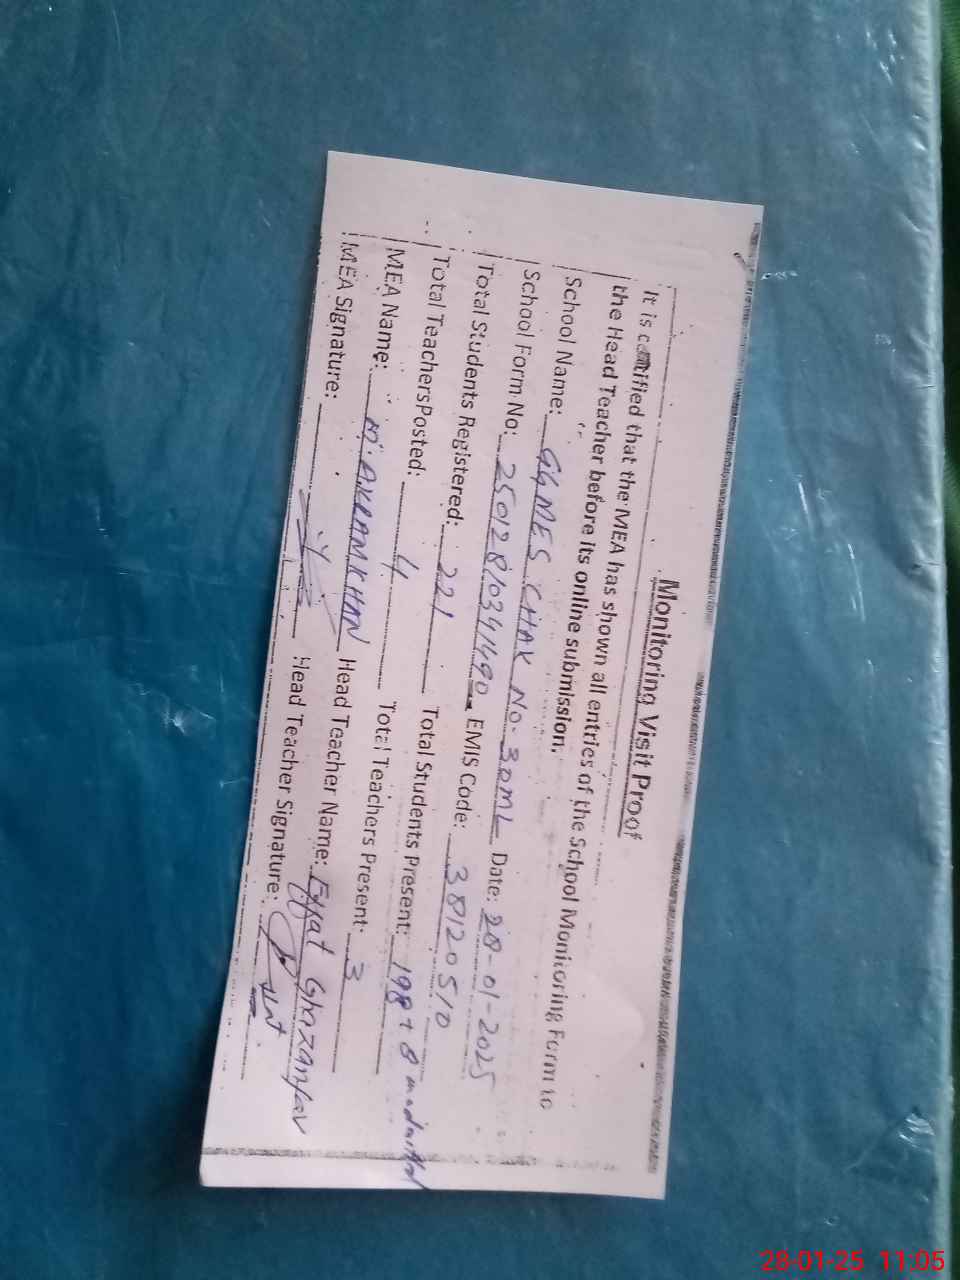 Monitoring Visit Proof
It is certified that the MEA has shown all entries of the School Monitoring Form to
the Head Teacher before its online submission.
School Name: GGMES CHAK NO. 30ML Date: 28-01-2025
School Form No: 2501281034490 EMIS Code: 38120510
Total Students Registered: 221 Total Students Present: 198+8
Total TeachersPosted: 4 Total Teachers Present: 3
MEA Name: M. AKRAM KHAN Head Teacher Name: Effat Ghazanfar
MEA Signature: Head Teacher Signature:
28-01-25 11:05